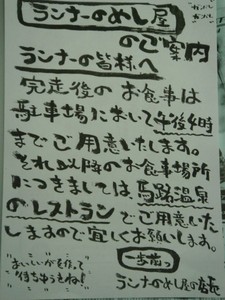 ランナーのめし屋
のご案内
ランナーの皆様へ
完走後のお食事は
駐車場において午後4時
までご用意いたします。
それ以降のお食事場所
につきましては、馬路温泉
のレストランでご用意いた
しますので宜しくお願いします。
おいしいがを作って
待ちゆうきね!
ランナーのめし屋の店長